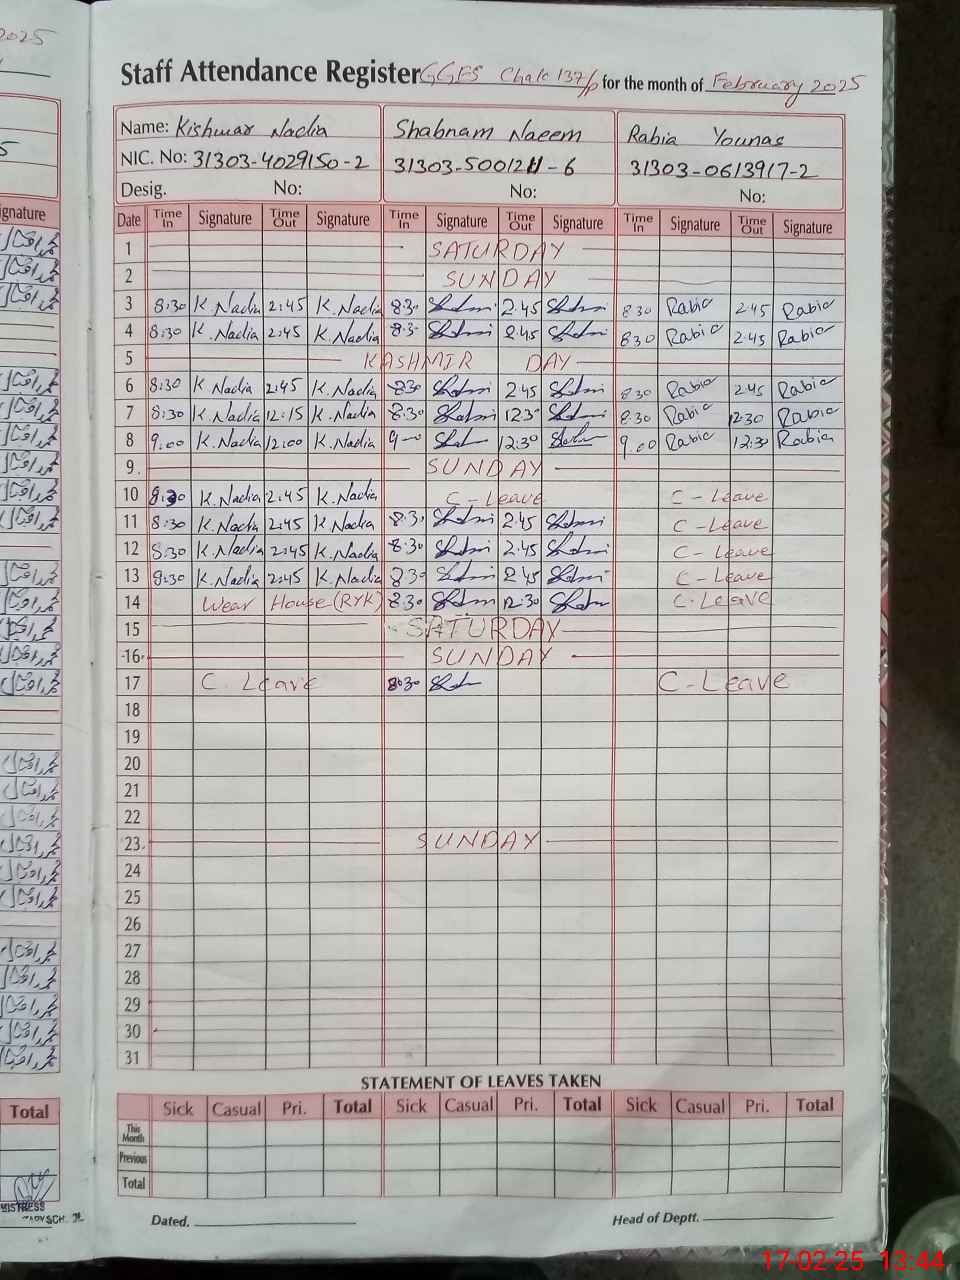 2025
Staff Attendance Register GGES Chak 137/p for the month of February 2025
Name: Kishwar Nadia Shabnam Naeem Rabia Younas
NIC. No: 31303-4029150-2 31303-5001211-6 31303-0613917-2
Desig. No: No: No:
Signature
Date Time In Signature Time Out Signature Time In Signature Time Out Signature Time In Signature Time Out Signature
1 SATURDAY
2 SUNDAY
3 8:30 K.Nadia 2:45 K.Nadia 8:30 2:45 8 30 Rabia 2:45 Rabia
4 8:30 K.Nadia 2:45 K.Nadia 8:3 2:45 8 30 Rabia 2:45 Rabia
5 KASHMIR DAY
6 8:30 K Nadia 2:45 K.Nadia 8:30 2:45 8 30 Rabia 2:45 Rabia
7 8:30 K.Nadia 12:15 K.Nadia 8:30 8.30 Rabia 12:30 Rabia
8 9.00 K.Nadia 12:00 K.Nadia 12:30 9.00 Rabia 12:30 Rabia
9. SUNDAY
10 8:30 K.Nadia 2:45 K.Nadia C - Leave C - Leave
11 8:30 K.Nadia 2:45 K.Nadia 8:3 2:45 C - Leave
12 8:30 K.Nadia 2:45 K.Nadia 8:30 2:45 C - Leave
13 8:30 K.Nadia 2:45 K.Nadia 8:30 2:45 C - Leave
14 Wear House (RYK) 8:30 12:30 C. Leave
15 SATURDAY
16 SUNDAY
17 C. Leave 8:30 C-Leave
18
19
20
21
22
23. SUNDAY
24
25
26
27
28
29
30
31
STATEMENT OF LEAVES TAKEN
Total Sick Casual Pri. Total Sick Casual Pri. Total Sick Casual Pri. Total
This Month
Previous
Total
MISTRESS
Dated. Head of Deptt.
17-02-25 13:44